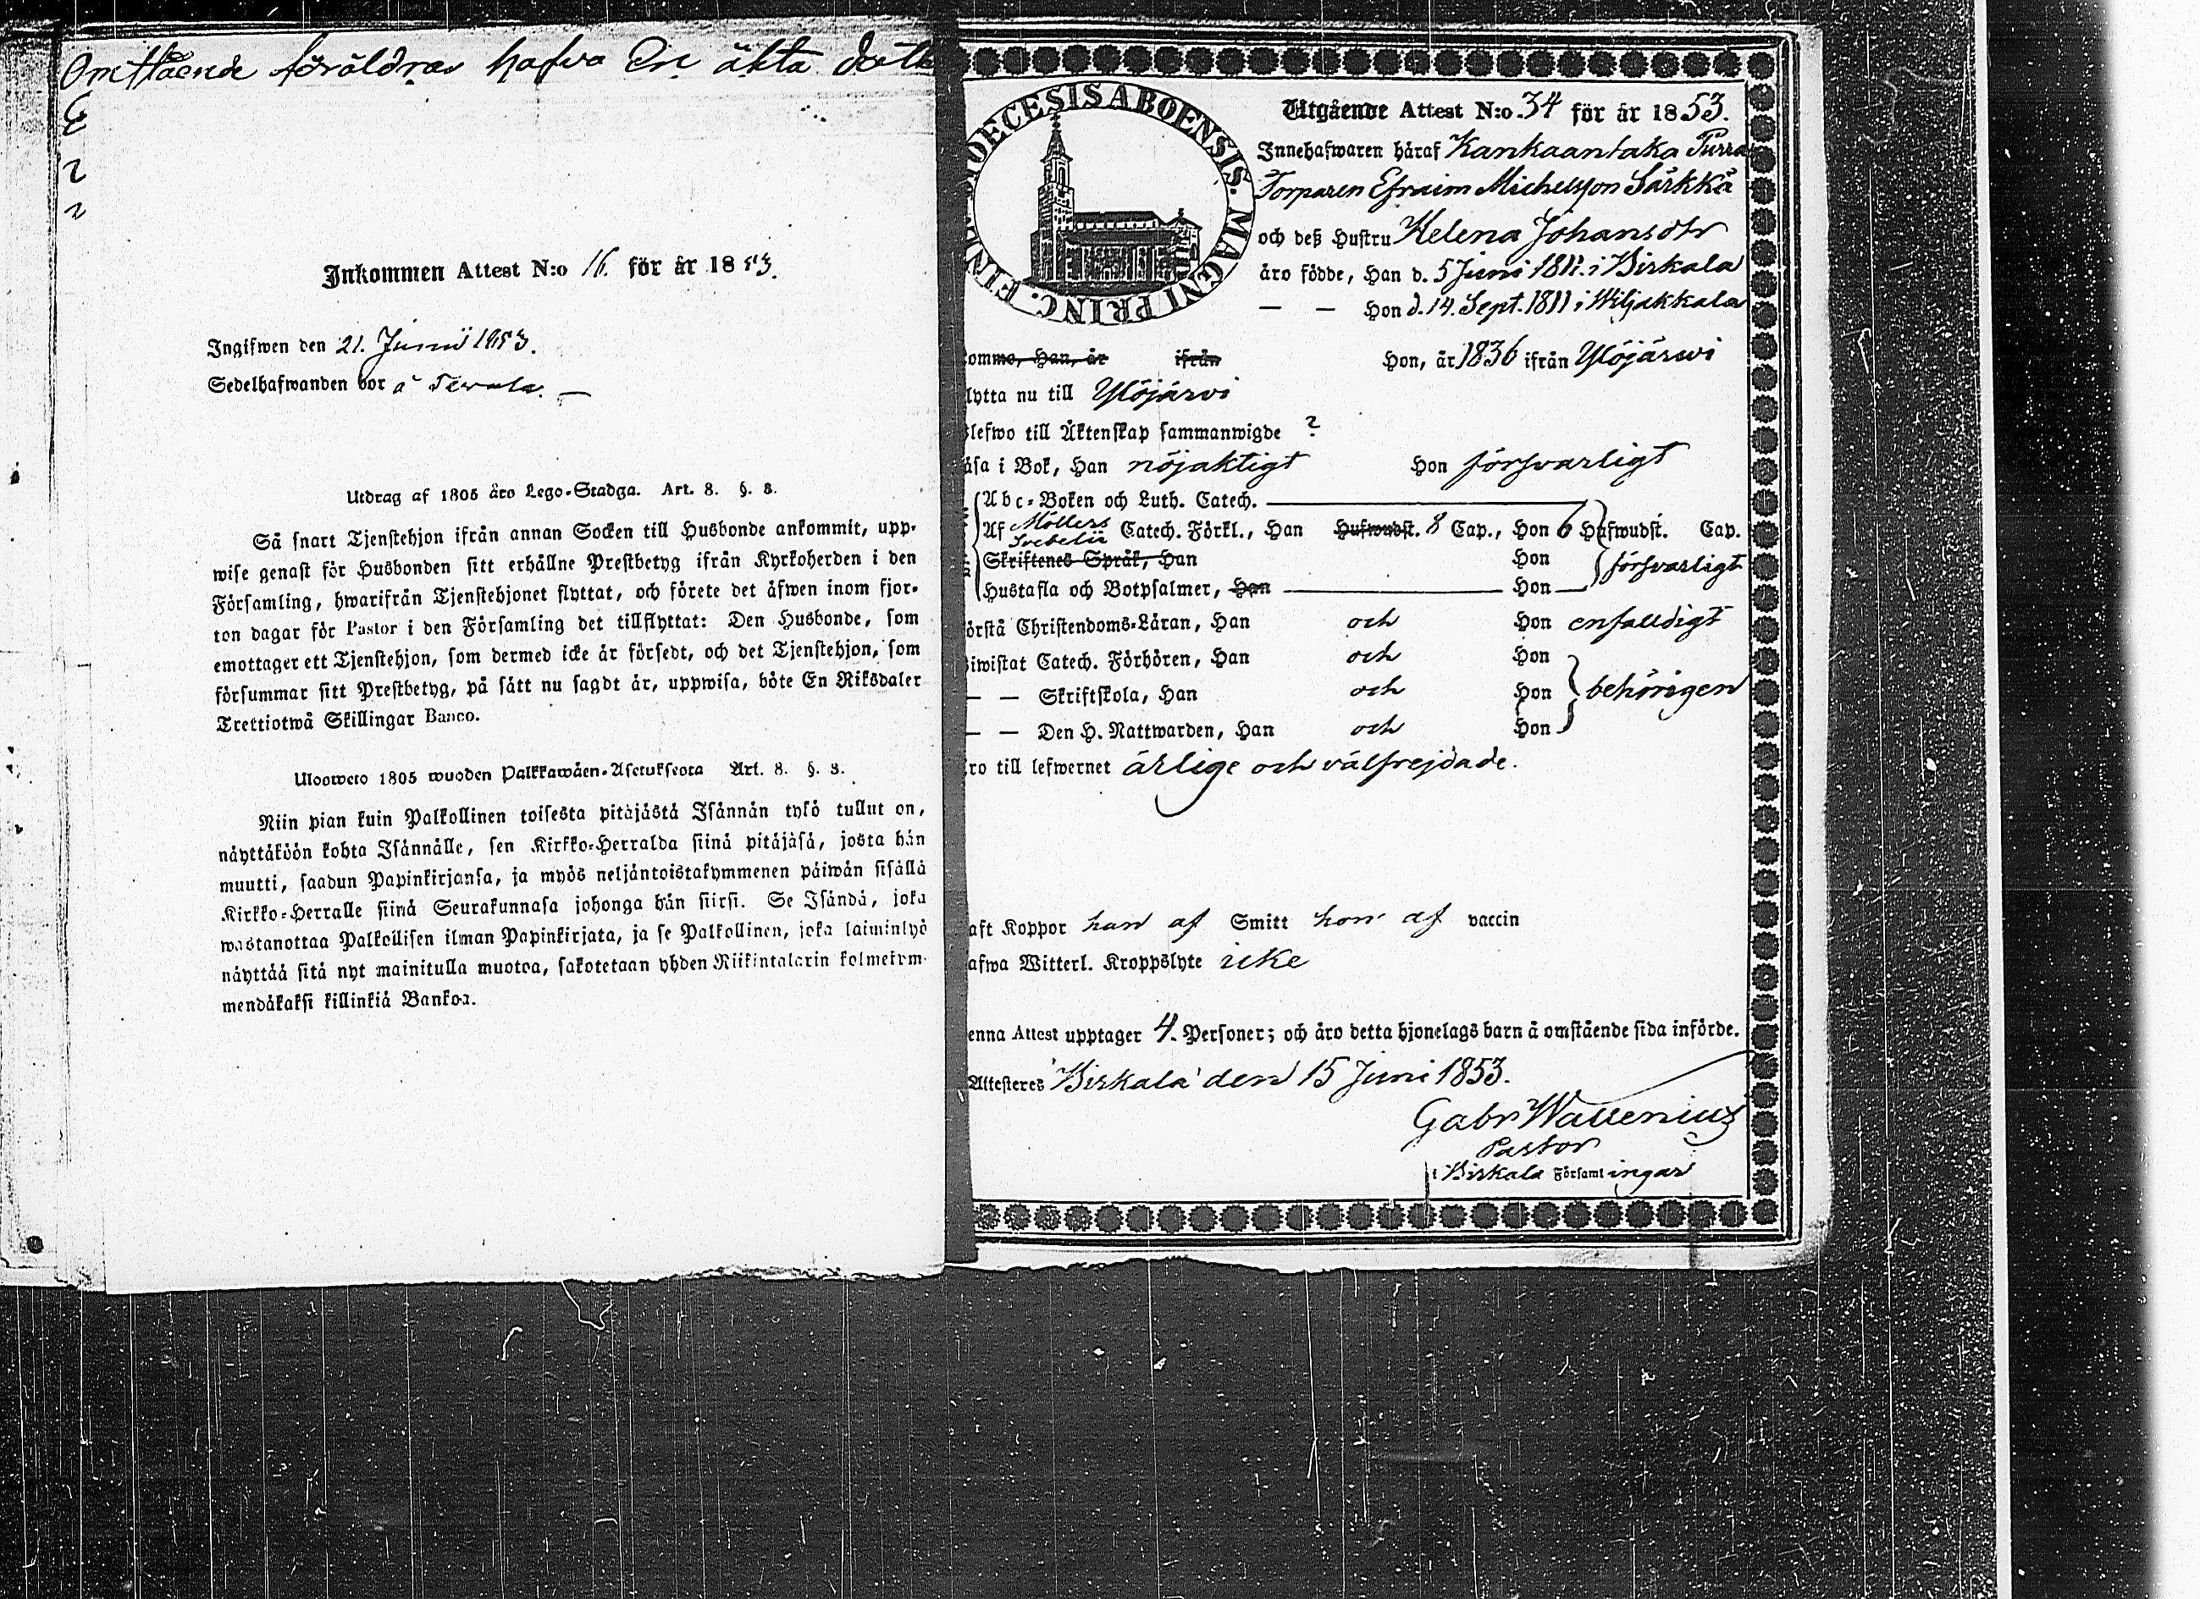 Omstående föräldrar hafva En äkta dott
E
Inkommen Attest N:o 16. för år 1853.
Ingifwen den 21. Junii 1853.
Sedelhafwanden bor å
Utdrag af 1805 års Lego-Stadga. Art. 8. §. 8.
Så snart Tjenstehjon ifrån annan Socken till Husbonde ankommit, upp-
wise genast för Husbonden sitt erhållne Prestbetyg ifrån Kyrkoherden i den
Församling, hwarifrån Tjenstehjonet flyttat, och förete det äfwen inom fjor-
ton dagar för Pastor i den Församling det tillflyttat: Den Husbonde, som
emottager ett Tjenstehjon, som dermed icke är försedt, och det Tjenstehjon, som
försummar sitt Prestbetyg, på sätt nu sagdt är, uppwisa, böte En Riksdaler
Trettiotwå Skillingar Banco.
Ulosweto 1805 wuoden Palkkawäen-Asetuksesta Art. 8. §. 8.
Niin pian kuin Palkollinen toisesta pitäjästä Isännän tykö tullut on,
näyttäköön kohta Isännälle, sen Kirkko-Herralda siinä pitäjäsä, josta hän
muutti, saadun Papinkirjansa, ja myös neljäntoistakymmenen päiwän sisällä
Kirkko-Herralle siinä Seurakunnasa johonga hän siirsi. Se Isändä, joka
wastanottaa Palkollisen ilman Papinkirjata, ja se Palkollinen, joka laiminlyö
näyttää sitä nyt mainitulla muotoa, sakotetaan yhden Riikintalarin kolmekym-
mendäkaksi killinkiä Bankoa.
DIOECESIS ABOENSIS. MAGNI PRINC. FIN
Utgående Attest N:o 34 för år 1853.
Innehafwaren häraf Kankaantaka Purra
Torparen Efraim Michelsson Särkkä
och deß Hustru Helena Johansdtr
äro födde, Han d. 5 Juni 1811. i Birkala
— — Hon d. 14. Sept. 1811 i Wiljakkala
omme, Han, år ifrån Hon, år 1836 ifrån Ylöjärwi
lytta nu till Ylöjärvi
lefwo till Äktenskap sammanwigde ?
äsa i Bok, Han nöjaktigt Hon försvarligt
Abc-Boken och Luth. Catech.
Af Möllers Svebelii Catech. Förkl., Han Hufwudst. 8 Cap., Hon 6 Hufwudst. Cap.
Skriftenes Språk, Han Hon försvarligt
Hustafla och Botpsalmer, Han Hon
örstå Christendoms-Läran, Han och Hon enfalldigt
iwistat Catech. Förhören, Han och Hon
— — Skriftskola, Han och Hon behörigen
— — Den H. Nattwarden, Han och Hon
ro till lefwernet ärlige och välfrejdade.
aft Koppor han af Smitt hon af vaccin
afwa Witterl. Kroppslyte icke
enna Attest upptager 4. Personer; och äro detta hjonelags barn å omstående sida införde.
Attesteres Birkala den 15 Juni 1853.
Gabr Wallenius
Pastor
i Birkala Församlingar